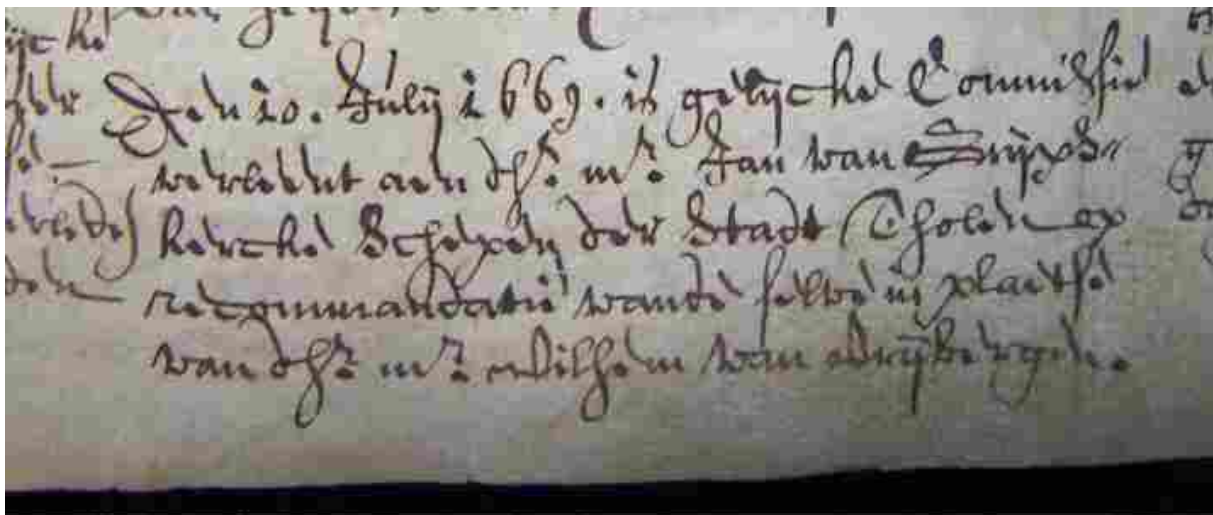 Den 20. Julij 1669. is gelijcke Commissie
verleent aen dhr. mr. Jan van
kercke Schepen der Stadt Tholen op
recommandatie vande selve in plaetse
van dhr. mr. Wilhem van Vrijbergen.